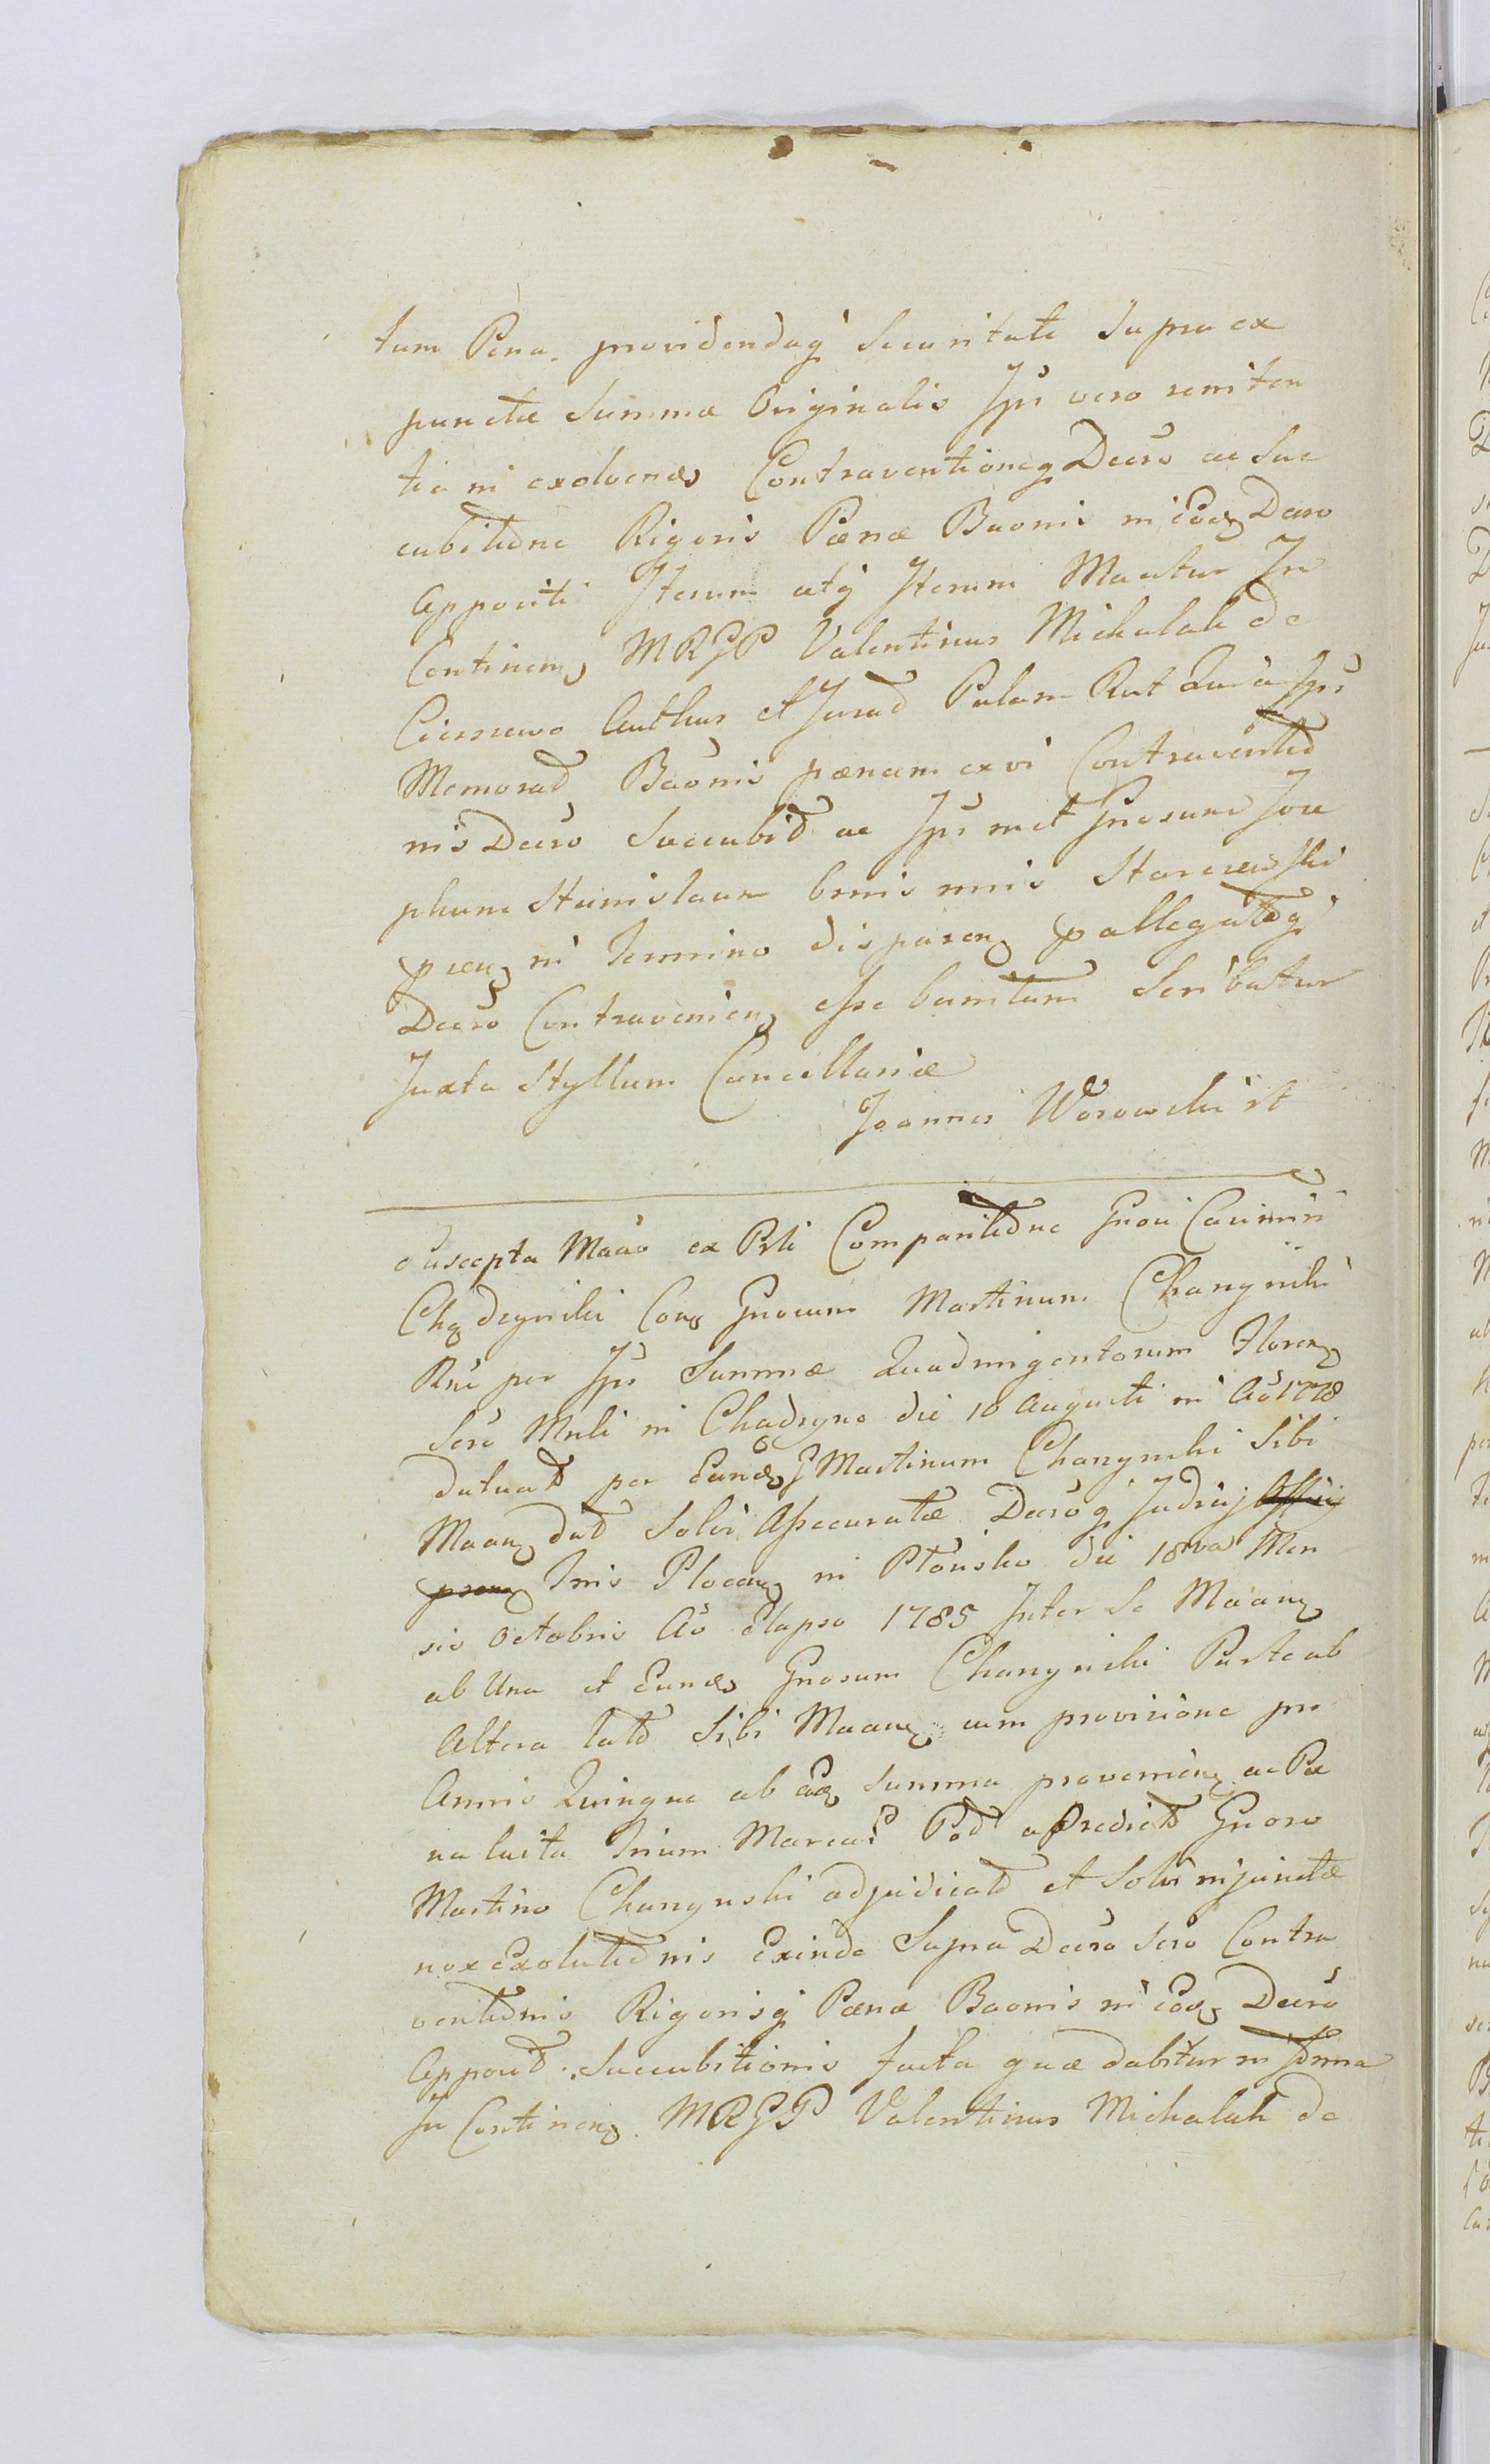 tum Pena. providendaq Securitate Supra ex
punctæ Summæ Originalis Ipsi vero reniten
tia in exolvendo Contraventioneq Decro ac Suc
cubitõne Rigoris Pœnæ Baonis in eod Decro
Appositi Iterum atq Iterum Maatur In
Continen MRGP Valentinus Michalak de
Authus et Jurad Palam Rnt Quia Ipsi
Memorad Baonis pœnam ex vi Contraventio
nis Decro Succubid ac Ipsi met Gnosum Jose
phum Stanislaum bonis mnis
pren in Termino disparen pallegatoq
Decro Contravenien esse banitum Scribatur
Juxta Styllum Cancellariæ
Joannes Worowski st
Suscepta Maao ex Prti Comparitione Gnosi Casimiri
Chądzynski Con Gnosum Martinum Charzynski
Rne per Ips Summæ Quadringentorum Floren
Sero Mnli in Chądzyno die 10 Augusti in Ao 1778
datuat per Eund G Martinum Charzynski Sibi
Maan dat Solvi Assecuratæ Decroq Judrij
Tris Plocen in Płońsko die 18va Men
sis Octobris Ao Elapso 1785 Inter Se Maan
ab Una et Eund Gnosum Charzynski Parte ab
Altera lato Sibi Maan cum provisione pro
Annis Quinque ab ead Summa provenien ac Pœ
na luita Trium Marcar Pod a Predicto Gnoso
Martino Charzynski adjudicato et Solvi injunctæ
non Exolutionis Exinde Supra Decro Sero Contra
ventionis Rigorisq Pœnæ Baonis in eod Decro
Apposit. Succubitionis facta quæ dabitur in forma
In Continen MRGP Valentinus Michalak de